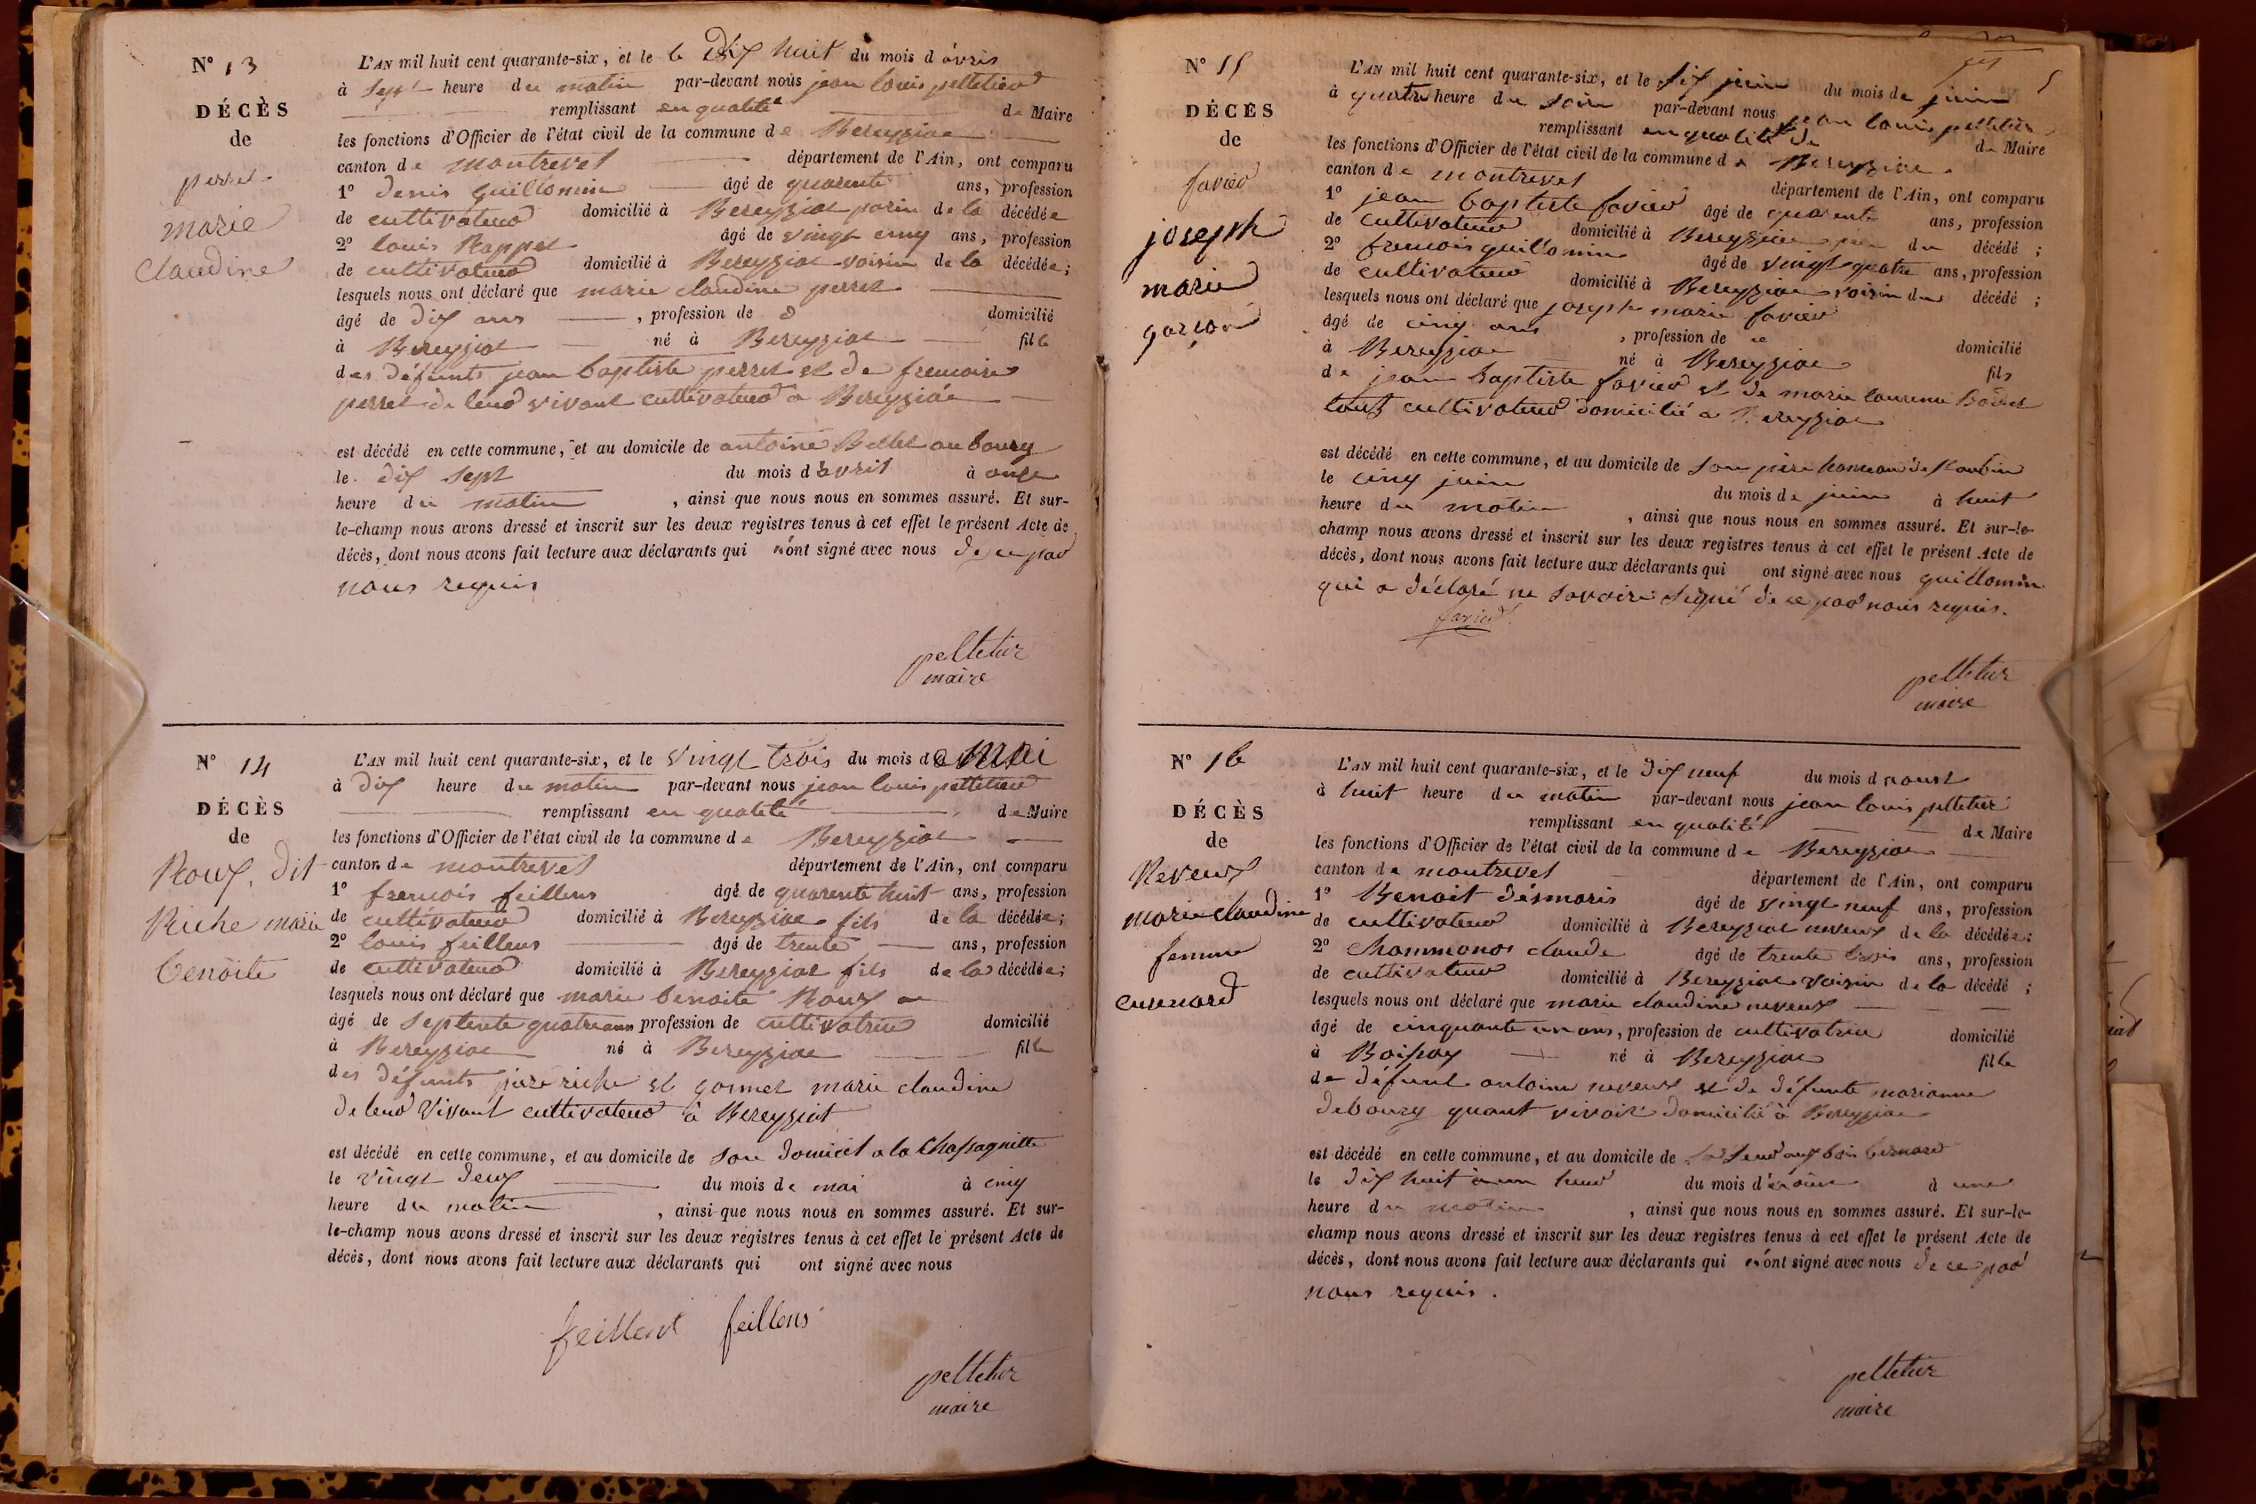 N° 13
DÉCÈS
de
perret
marie
Claudine
L'AN mil huit cent quarante-six, et le le dix huit du mois d avris
à sept heure du matin par-devant nous jean louis pelletier
remplissant en qualité de Maire
les fonctions d'Officier de l'état civil de la commune de Bereyziat
canton de montrevel département de l'Ain, ont comparu
1° denis guillomin âgé de quarente ans, profession
de cultivateur domicilié à Bereyziat parin de la décédée
2° louis Rappet âgé de vingt cinq ans, profession
de cultivateur domicilié à Bereyziat voisin de la décédée;
lesquels nous ont déclaré que marie claudine perret
âgé de dix ans, profession de domicilié
à Bereyziat né à Bereyziat fille
des défunts jean baptiste perret et de frencoise
perret de leur vivant cultivateur a Bereyziat
est décédé en cette commune, et au domicile de antoine Bettet au bourg
le dix sept du mois d'avril à onze
heure du matin, ainsi que nous nous en sommes assuré. Et sur-
le-champ nous avons dressé et inscrit sur les deux registres tenus à cet effet le présent Acte de
décès, dont nous avons fait lecture aux déclarants qui n'ont signé avec nous de ce par
nous requis
pelletier
maire
N° 14
DÉCÈS
de
Roux. dit
Riche marie
benoite
L'AN mil huit cent quarante-six, et le vingt trois du mois de mai
à dix heure du matin par-devant nous jean louis pelletier
remplissant en qualité de Maire
les fonctions d'Officier de l'état civil de la commune de Bereyziat
canton de montrevel département de l'Ain, ont comparu
1° frencois feillens âgé de quarente huit ans, profession
de cultivateur domicilié à Bereyziat fils de la décédée;
2° louis feillens âgé de trente ans, profession
de cultivateur domicilié à Bereyziat fils de la décédée;
lesquels nous ont déclaré que marie benoite Roux
âgé de septente quatre ans profession de cultivatrice domicilié
à Bereyziat né à Bereyziat fille
des défunts piere riche et gormet marie claudine
de leur vivant cultivateur à Bereyziat
est décédé en cette commune, et au domicile de son domicil a la Chassagnitte
le vingt deux du mois de mai à cinq
heure du matin, ainsi que nous nous en sommes assuré. Et sur-
le-champ nous avons dressé et inscrit sur les deux registres tenus à cet effet le présent Acte de
décès, dont nous avons fait lecture aux déclarants qui ont signé avec nous
feillens feillens
pelletier
maire
N° 15
DÉCÈS
de
favier
joseph
marie
garçon
L'AN mil huit cent quarante-six, et le six juin du mois de juin
à quatre heure du soire par-devant nous jean louis pelletier
remplissant en qualité de de Maire
les fonctions d'Officier de l'état civil de la commune de Bereyziat
canton de montrevel département de l'Ain, ont comparu
1° jean baptiste favier âgé de quarente ans, profession
de cultivateur domicilié à Bereyziat père du décédé;
2° frencois guillomin âgé de vingt quatre ans, profession
de cultivateur domicilié à Bereyziat voisin du décédé;
lesquels nous ont déclaré que joseph marie favier
âgé de cinq ans, profession de domicilié
à Bereyziat né à Bereyziat fils
de jean baptiste favier et de marie laurence
touts cultivateur domicilié a Bereyziat
est décédé en cette commune, et au domicile de son père hameau de
le cinq juin du mois de juin à huit
heure du matin, ainsi que nous nous en sommes assuré. Et sur-le-
champ nous avons dressé et inscrit sur les deux registres tenus à cet effet le présent Acte de
décès, dont nous avons fait lecture aux déclarants qui ont signé avec nous guillomin
qui a déclaré ne savoire signé de ce par nous requis.
favier
pelletier
maire
N° 16
DÉCÈS
de
Neveux
marie claudine
femme
cusenard
L'AN mil huit cent quarante-six, et le dix neuf du mois d aoust
à huit heure du matin par-devant nous jean louis pelletier
remplissant en qualité de Maire
les fonctions d'Officier de l'état civil de la commune de Bereyziat
canton de montrevel département de l'Ain, ont comparu
1° Benoit désmaris âgé de vingt neuf ans, profession
de cultivateur domicilié à Bereyziat neveux de la décédée;
2° Chammonos claude âgé de trente trois ans, profession
de cultivateur domicilié à Bereyziat voisin de la décédé;
lesquels nous ont déclaré que marie claudine neveux
âgé de cinquante un ans, profession de cultivatrice domicilié
à Boissey né à Bereyziat fille
de défunt antoine neveux et de défunte marianne
debourg quant vivoit domicilié à Bereyziat
est décédé en cette commune, et au domicile de bernard
le dix huit à un heur du mois d' à une
heure du matin, ainsi que nous nous en sommes assuré. Et sur-le-
champ nous avons dressé et inscrit sur les deux registres tenus à cet effet le présent Acte de
décès, dont nous avons fait lecture aux déclarants qui n'ont signé avec nous de ce par
nous requis.
pelletier
maire